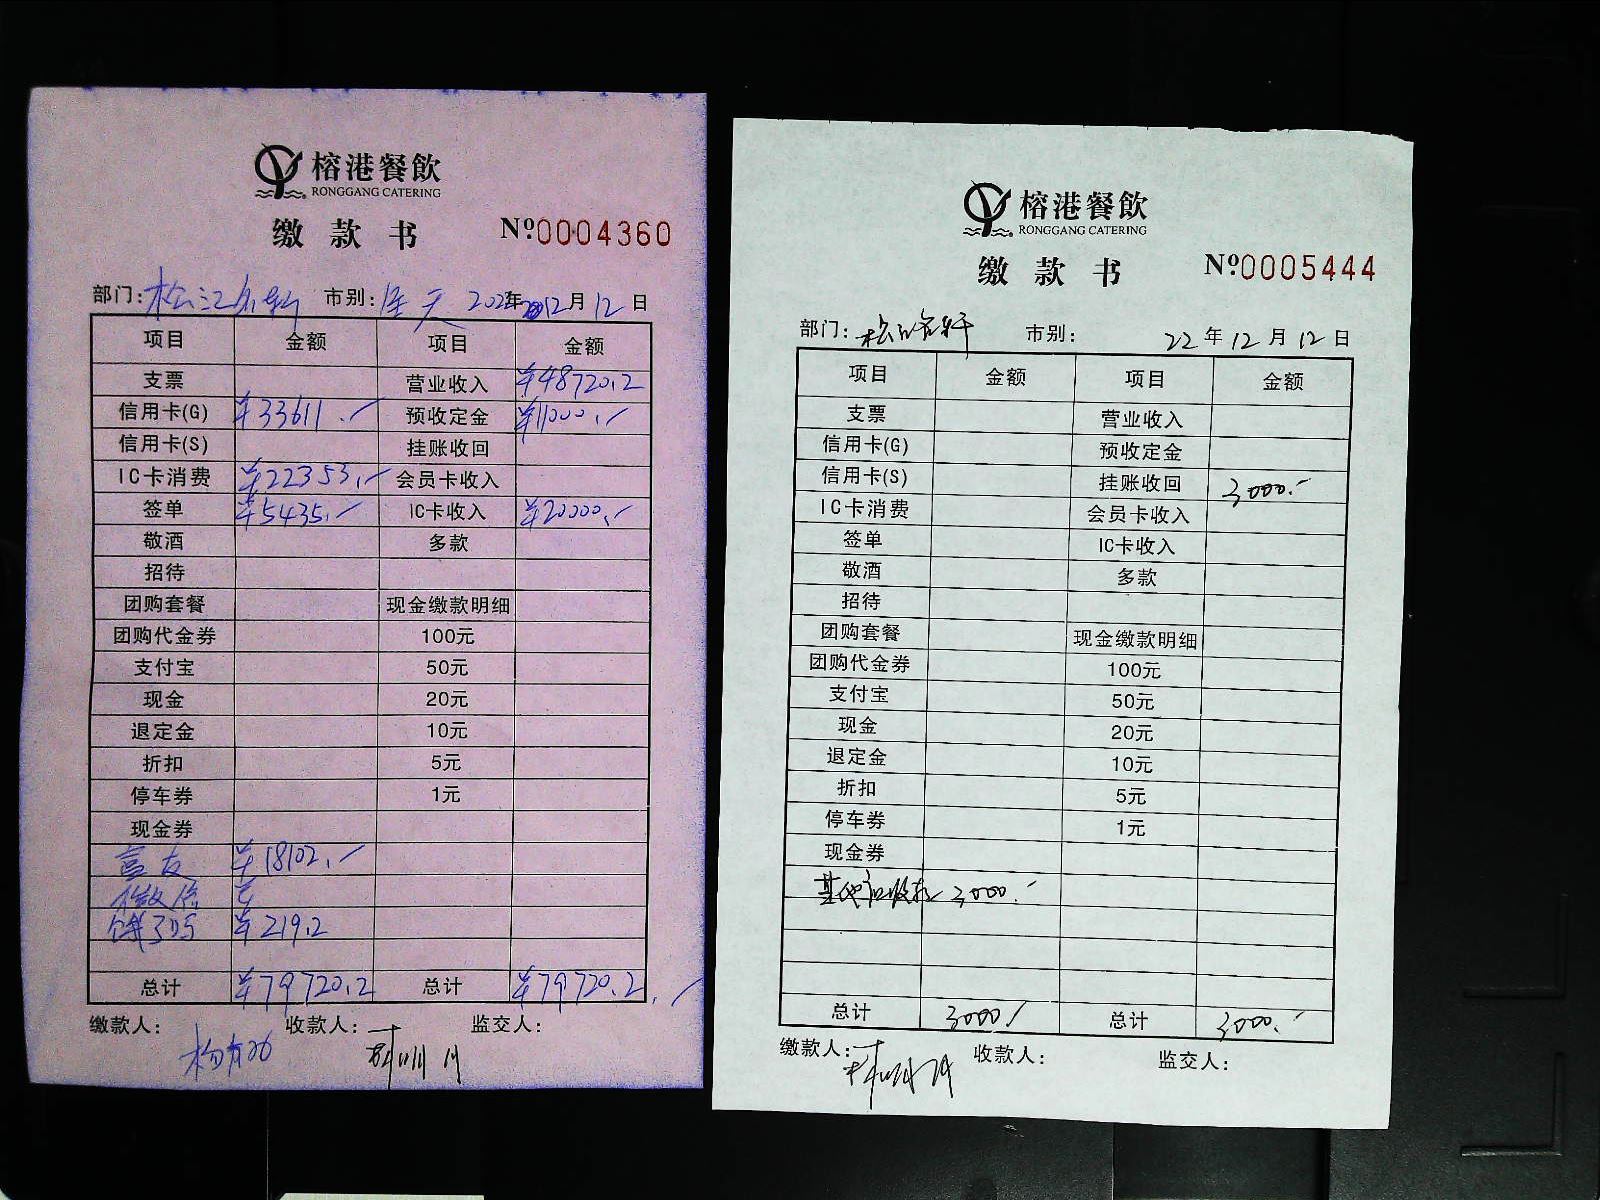 榕港餐飲
RONGGANG CATERING
缴款书 Nº0004360
部门: 松江 市别: 全天 2022年12月12日
项目 金额 项目 金额
支票 营业收入 ¥48720.2
信用卡(G) ¥33611.- 预收定金 ¥11000.-
信用卡(S) 挂账收回
IC卡消费 ¥22353.- 会员卡收入
签单 ¥5435.- IC卡收入 ¥20000.-
敬酒 多款
招待
团购套餐 现金缴款明细
团购代金券 100元
支付宝 50元
现金 20元
退定金 10元
折扣 5元
停车券 1元
现金券
¥18102.-
微信
¥219.2
总计 ¥79720.2 总计 ¥79720.2.-
缴款人: 收款人: 监交人:
榕港餐飲
RONGGANG CATERING
缴款书 Nº0005444
部门: 松江 市别: 22年12月12日
项目 金额 项目 金额
支票 营业收入
信用卡(G) 预收定金
信用卡(S) 挂账收回 3000.-
IC卡消费 会员卡收入
签单 IC卡收入
敬酒 多款
招待
团购套餐 现金缴款明细
团购代金券 100元
支付宝 50元
现金 20元
退定金 10元
折扣 5元
停车券 1元
现金券
其他应收款 3000.-
总计 3000.- 总计 3000.-
缴款人: 收款人: 监交人: